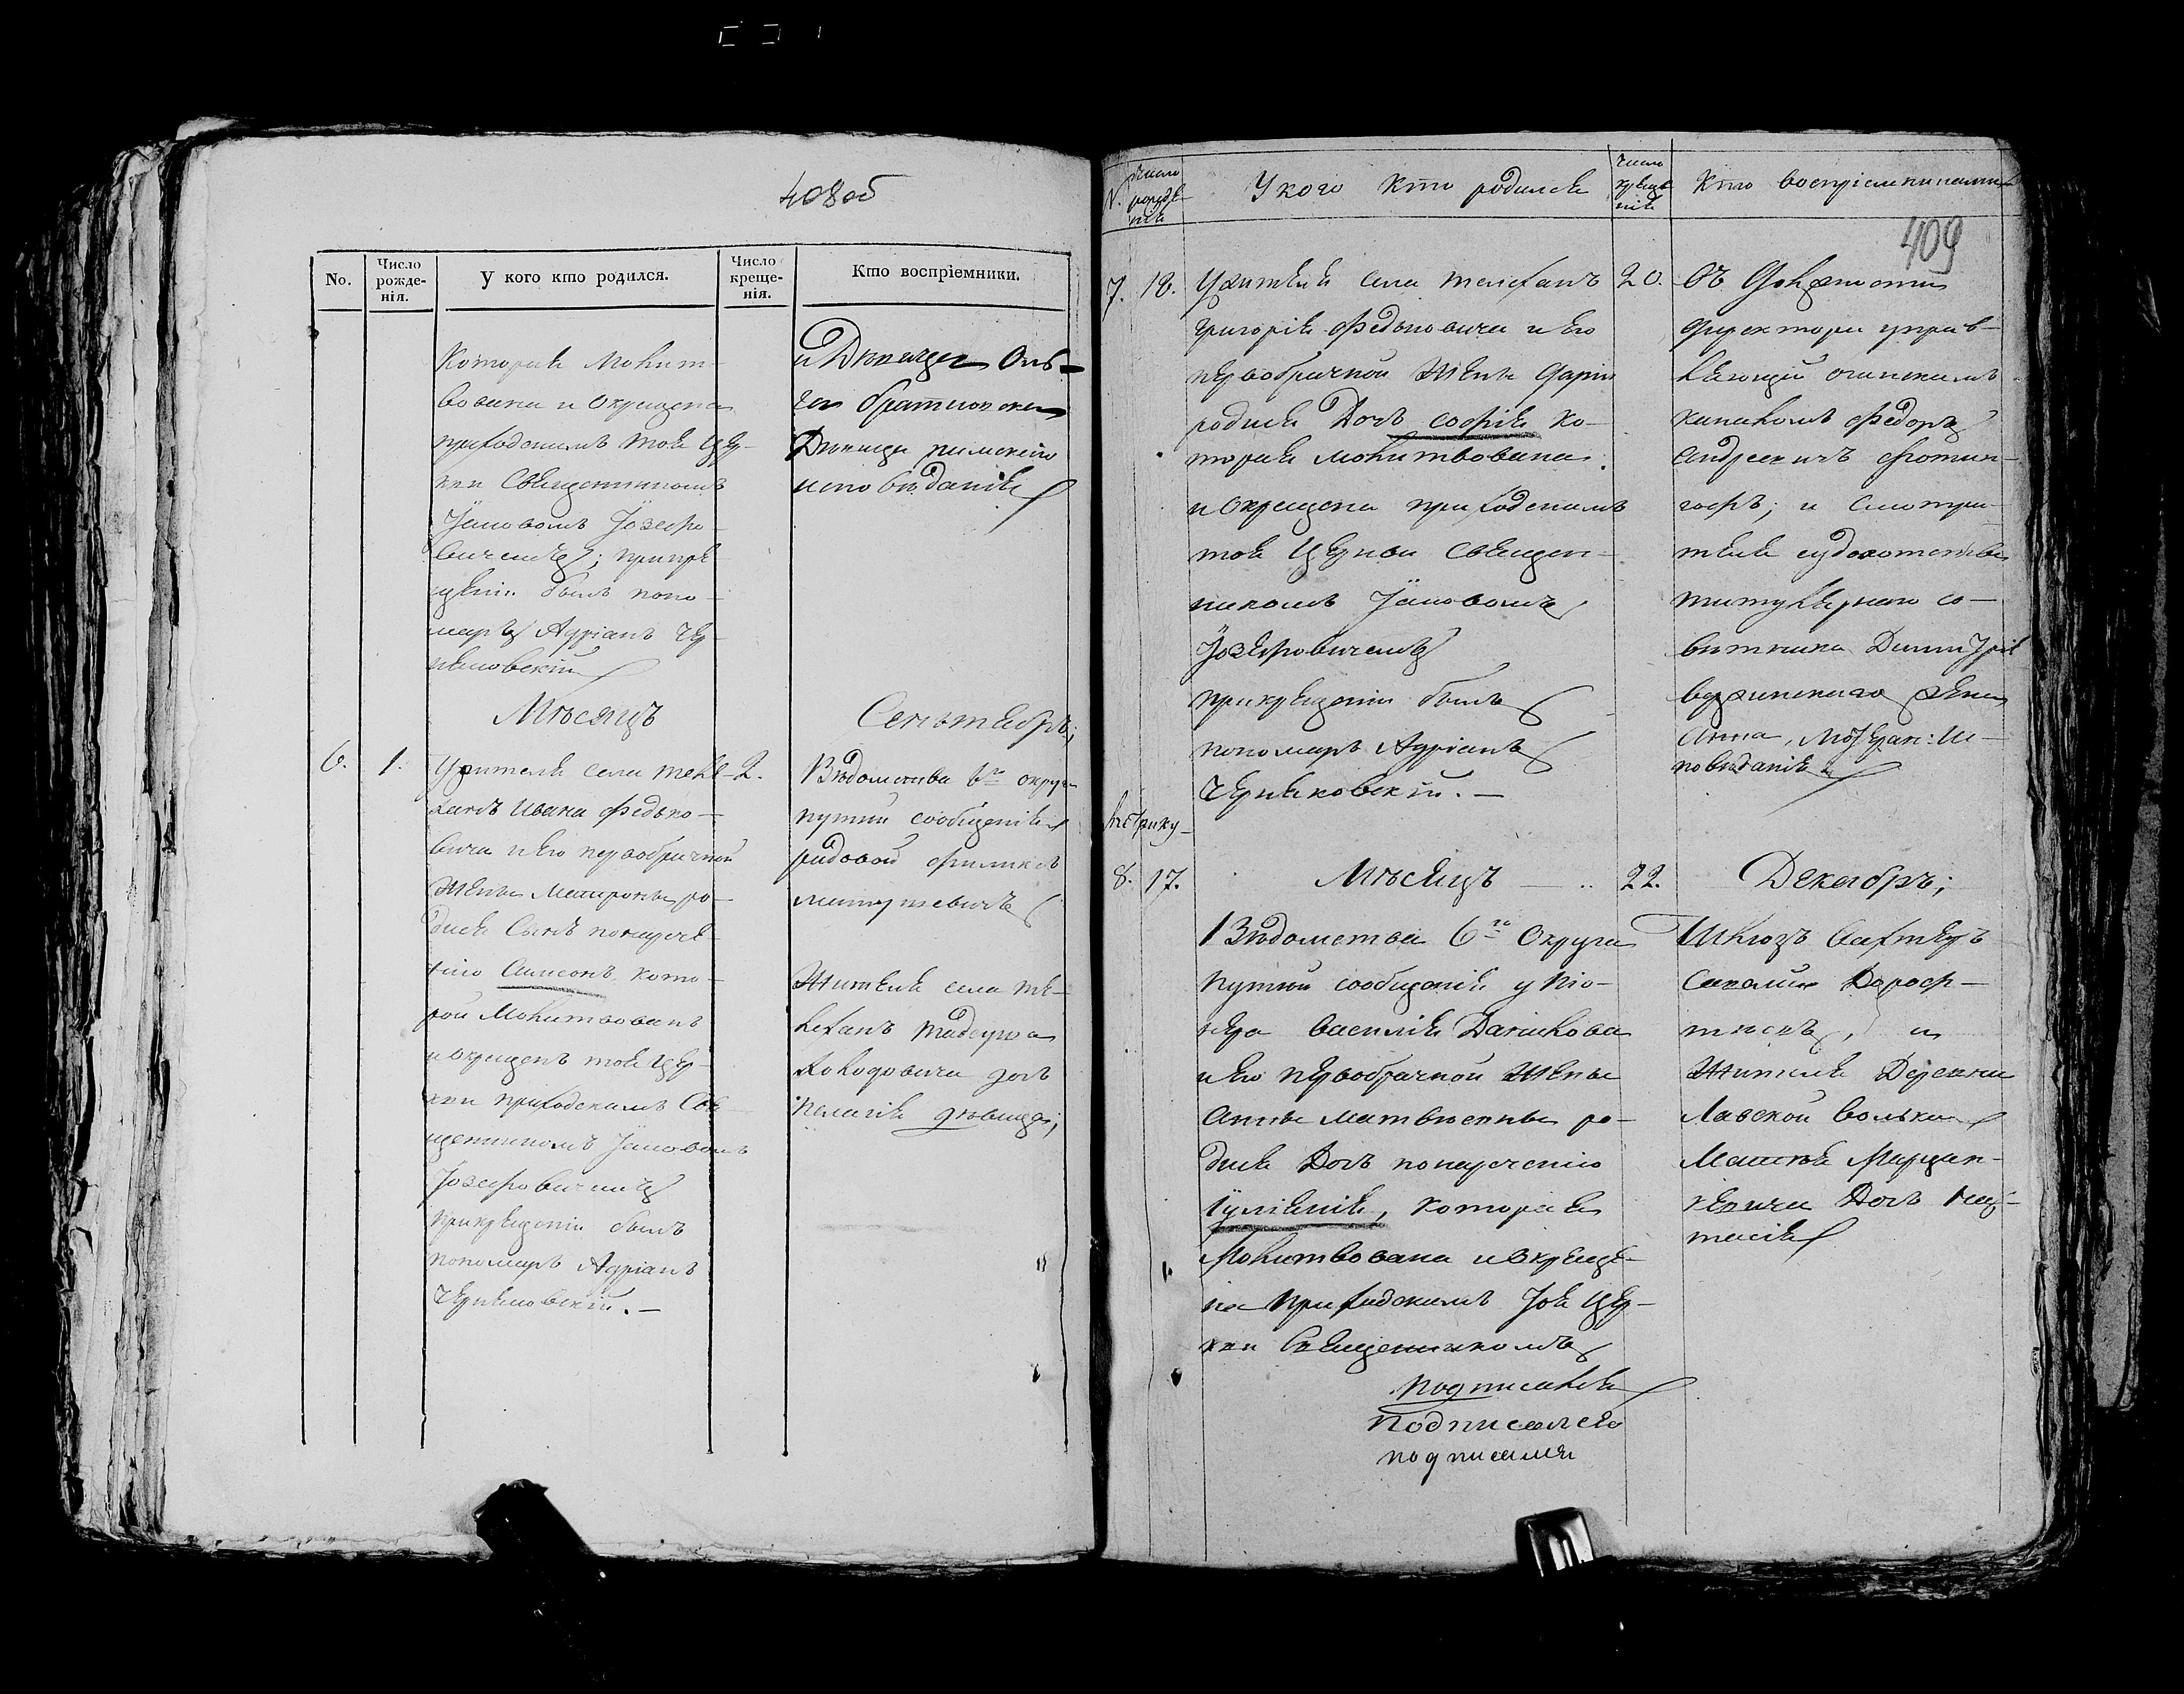 408об
No.
Число рожде- нія.
У кого кто родился.
Число креще- нія.
Кто воспріемники.
которая молит-
вована и окрещена
приходскимъ тоя цер-
кви священникомъ
Іаковомъ Іозефо-
вичемъ; при кре-
щеніи былъ поно-
марь Адріанъ Чер-
няковскій
и Девица Оль-
га братковска
Девица римскаго
исповеданія
Месяцъ
Сентябрь;
6.
1.
2.
У жителя села теле-
ханъ Ивана Федько-
вича и его первобрачной
жены Матроны ро-
дися сынъ по нарече-
нію Самсонъ, кото-
рой молитвованъ
и окрещенъ тоя цер-
кви приходскимъ свя-
щенникомъ Іаковомъ
Іозефовичемъ
при крещеніи былъ
пономарь Адріанъ
Черняковскій. —
Ведомства 6го округа
путей сообщенія
рядовой
житель села те-
леханъ Тадеуша
дочь
Пелагія девица;
N.
число рожде- нія
У кого кто родился
число креще- нія
Кто воспріемниками
409
7.
18.
20.
У жителя села телеханъ
Григорія Федьковича и его
первобрачной жены Даріи
родися дочь софія ко-
торая молитвована
и окрещена приходскимъ
тоя церкви священ-
никомъ Іаковомъ
Іозефовичемъ
при крещеніи былъ
пономарь Адріанъ
Черняковскій. —
директора управ-
ляющій огинскимъ
каналомъ Федоръ
и смотри-
теля судоходства
титулярнаго со-
ветника Димитрія
жена
Анна, лютеран: ис-
поведанія
8.
17.
Месяцъ
22.
Декабрь;
Ведомства 6го Округа
путей сообщенія у піо-
нера Василія Данилова
и его первобрачной жены
Анны Матвеевны ро-
дися дочь по нареченію
Іуліанія, которая
молитвована и окреще-
на приходскимъ тоя цер-
кви священникомъ
Шлюзъ вахтеръ
и
жителя Деревни
дочь
подписался
подписался
подписался